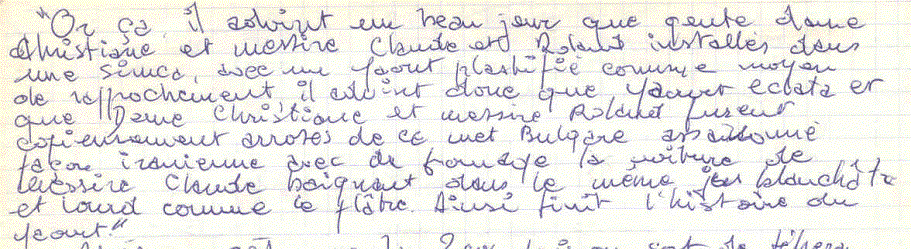 "Or ça, il advint un beau jour que gente dame
Christiane et messire Claude et Roland installés dans
une Simca, avec un yaourt plastifié comme moyen
de rapprochement il advint donc que yaourt eclata et
que Dame Christiane et messire Roland furent
copieusement arrosés de ce met Bulgare assaisonné
façon iranienne avec du fromage la voiture de
Messire Claude baignant dans le même jus blanchâtre
et lourd comme le plâtre. Ainsi finit l'histoire du
yaourt."